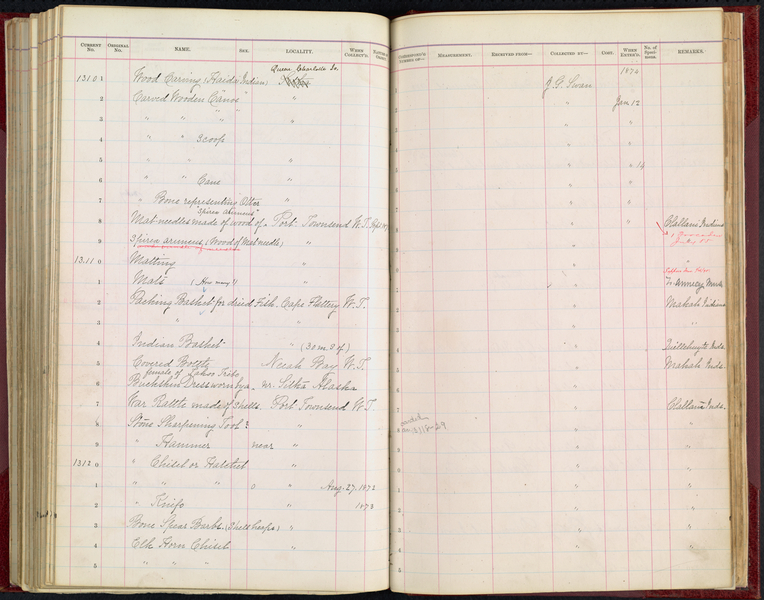 CURRENT No. ORIGINAL No. NAME. SEX. LOCALITY. WHEN COLLECT'D. MEASUREMENT. RECEIVED FROM— COLLECTED BY— COST. WHEN ENTER'D. No. of Specimens. REMARKS.
Queen Charlotte Is. 1874
13101 Wood Carving (Haida Indian) J. G. Swan
2 Carved Wooden Canoe " " " Jan 12
3 " " " " " "
4 " " Scoop "
5 " " " " " 14
6 " " Cane " " "
7 " Bone representing Otter " "
"Spirea
8 Mat-needles made of wood of Port Townsend W. T. " " Clallam Indians
9 Spirea (Wood of Mat needle) " "
13110 Matting " " "
1 Mats (How many?) " "
2 Packing Basket for dried Fish. Cape Flattery W. T. " Makah Indians
3 " " " " "
4 Indian Basket " "
5 Covered Bottle Neeah Bay W. T. " Makah Inds.
female of
6 Buckskin Dress worn by a nr. Sitka Alaska "
7 War Rattle made of Shells. Port Townsend W. T. " Clallam Inds.
8 Stone Sharpening Tool? " " "
9 " Hammer near " " "
13120 " Chisel or Hatchet " " "
1 " " " " Aug. 27. 1872 " "
2 " Knife " 1873 " "
3 Bone Spear Barbs. " " "
4 Elk Horn Chisel " " "
5 " " " " "